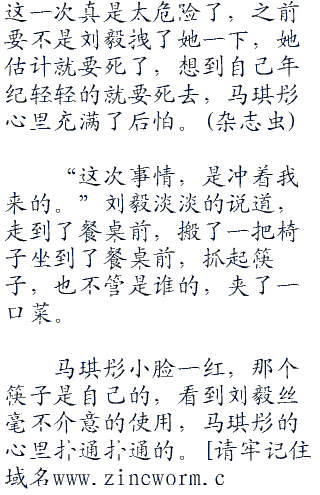 这一次真是太危险了，之前
要不是刘毅拽了她一下，她
估计就要死了，想到自己年
纪轻轻的就要死去，马琪彤
心里充满了后怕。(杂志虫)
“这次事情，是冲着我
来的。”刘毅淡淡的说道，
走到了餐桌前，搬了一把椅
子坐到了餐桌前，抓起筷
子，也不管是谁的，夹了一
口菜。
马琪彤小脸一红，那个
筷子是自己的，看到刘毅丝
毫不介意的使用，马琪彤的
心里扑通扑通的。[请牢记住
域名www.zincworm.c